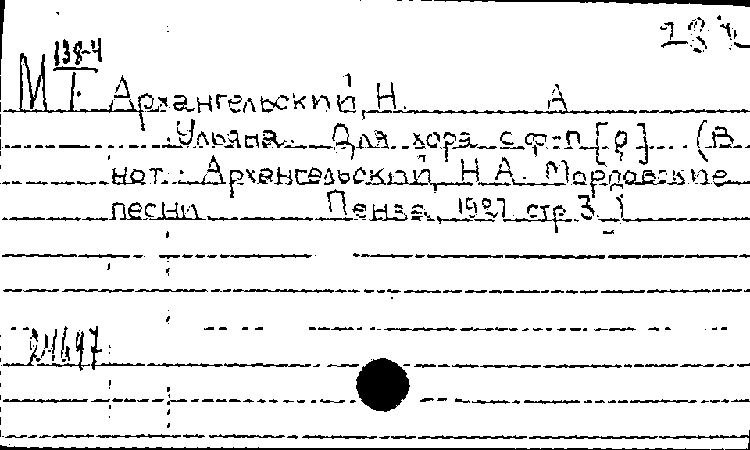 138-4
М Г. Архангельский, Н. А
Ульяна. Для хора с ф-п [р] (В
нот.: Архангельский, Н А. Мордовские
песни Пенза, 1927 стр 3 )
24697